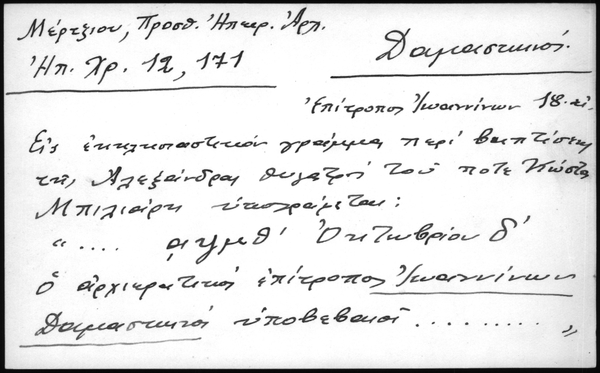 Μέρτζιου, Προσθ. Ἠπειρ. Ἀρχ.
Ἠπ. Χρ. 12, 171
Δαμασκηνός.
Ἐπίτροπος Ἰωαννίνων 18. αἰ.
Εἰς ἐκκλησιαστικόν γράμμα περί βαπτίσεως
τῆς Ἀλεξάνδρας θυγατρός τοῦ ποτε Κώστα
Μπιλιάρη ὑπογράφεται:
" .... αψμθ' Ὀκτωβρίου δ'
ὁ ἀρχιερατικός ἐπίτροπος Ἰωαννίνων
Δαμασκηνός ὑποβεβαιοῖ .......... "